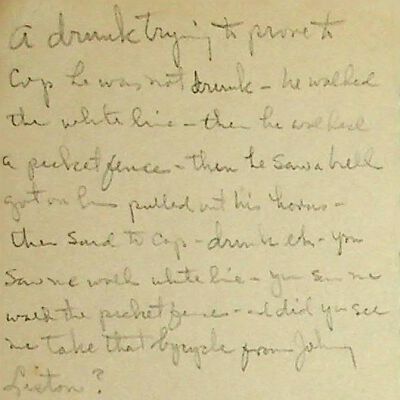 A drunk trying to prove to
Cop he was not drunk - he walked
the white line - then he walked
a picket fence - then he saw a bull
got on him pulled out his horns -
then said to Cop - drunk eh - you
saw me walk white line - you saw me
walk the picket fence - did you see
me take that bycycle from Johny
Sixton?